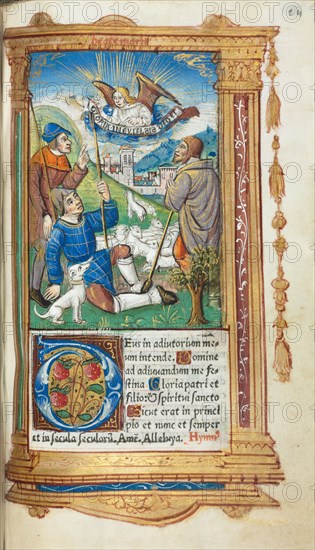 GLORIA IN EXCELSIS DEO
Eus in adiutorium me
um intende. Domine
ad adiuuandum me fe
stina Gloria patri et
filio: & spiritui sancto
Sicut erat in princi
pio et nunc et semper
et in secula seculorũ. Amẽ. Alleluya. Hymn9